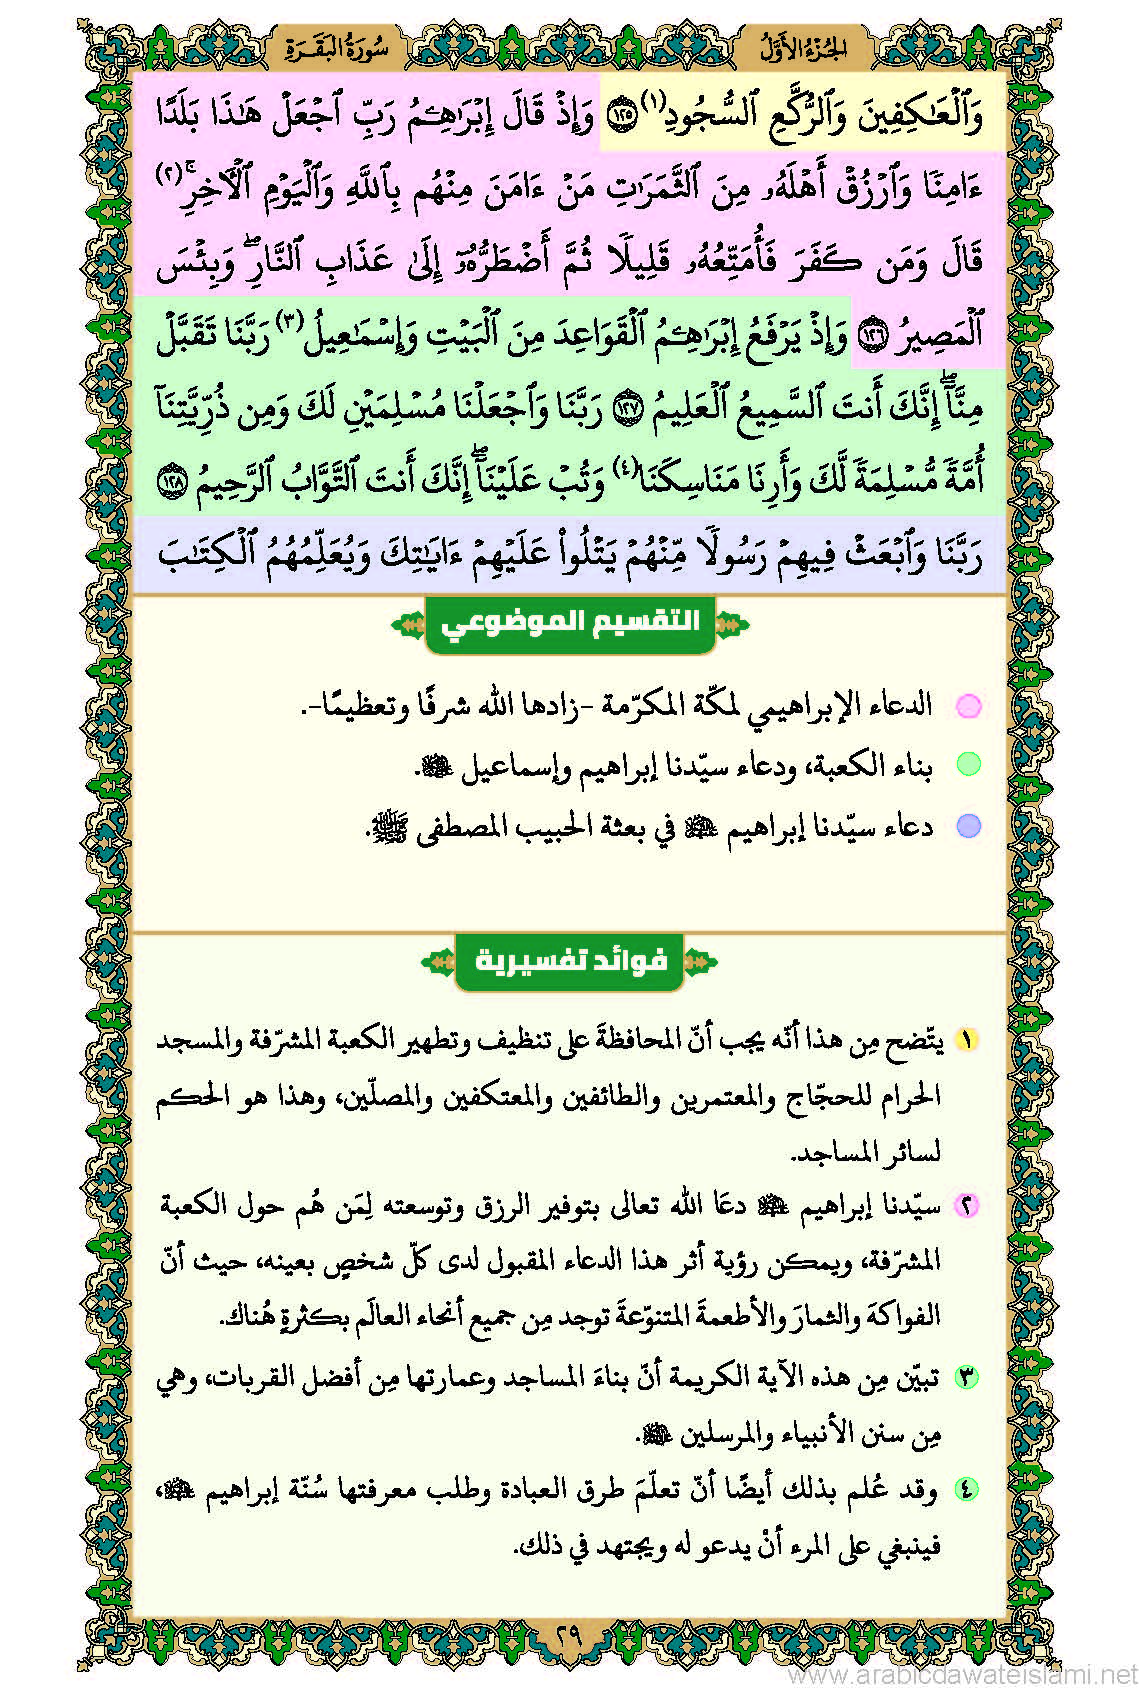 الجُزْءُ الأَوَّلُ
سُورَةُ البَقَرَةِ
وَٱلۡعَٰكِفِينَ وَٱلرُّكَّعِ ٱلسُّجُودِ(١) ١٢٥ وَإِذۡ قَالَ إِبۡرَٰهِـۧمُ رَبِّ ٱجۡعَلۡ هَٰذَا بَلَدًا
ءَامِنٗا وَٱرۡزُقۡ أَهۡلَهُۥ مِنَ ٱلثَّمَرَٰتِ مَنۡ ءَامَنَ مِنۡهُم بِٱللَّهِ وَٱلۡيَوۡمِ ٱلۡأٓخِرِۚ(٢)
قَالَ وَمَن كَفَرَ فَأُمَتِّعُهُۥ قَلِيلٗا ثُمَّ أَضۡطَرُّهُۥٓ إِلَىٰ عَذَابِ ٱلنَّارِۖ وَبِئۡسَ
ٱلۡمَصِيرُ ١٢٦ وَإِذۡ يَرۡفَعُ إِبۡرَٰهِـۧمُ ٱلۡقَوَاعِدَ مِنَ ٱلۡبَيۡتِ وَإِسۡمَٰعِيلُ(٣) رَبَّنَا تَقَبَّلۡ
مِنَّآۖ إِنَّكَ أَنتَ ٱلسَّمِيعُ ٱلۡعَلِيمُ ١٢٧ رَبَّنَا وَٱجۡعَلۡنَا مُسۡلِمَيۡنِ لَكَ وَمِن ذُرِّيَّتِنَآ
أُمَّةٗ مُّسۡلِمَةٗ لَّكَ وَأَرِنَا مَنَاسِكَنَا(٤) وَتُبۡ عَلَيۡنَآۖ إِنَّكَ أَنتَ ٱلتَّوَّابُ ٱلرَّحِيمُ ١٢٨
رَبَّنَا وَٱبۡعَثۡ فِيهِمۡ رَسُولٗا مِّنۡهُمۡ يَتۡلُواْ عَلَيۡهِمۡ ءَايَٰتِكَ وَيُعَلِّمُهُمُ ٱلۡكِتَٰبَ
التقسيم الموضوعي
الدعاء الإبراهيمي لمكّة المكرّمة -زادها الله شرفًا وتعظيمًا-.
بناء الكعبة، ودعاء سيّدنا إبراهيم وإسماعيل.
دعاء سيّدنا إبراهيم في بعثة الحبيب المصطفى ﷺ.
فوائد تفسيرية
١ يتّضح مِن هذا أنّه يجب أنّ المحافظةَ على تنظيف وتطهير الكعبة المشرّفة والمسجد
الحرام للحجّاج والمعتمرين والطائفين والمعتكفين والمصلّين، وهذا هو الحكم
لسائر المساجد.
٢ سيّدنا إبراهيم دعَا الله تعالى بتوفير الرزق وتوسعته لِمَن هُم حول الكعبة
المشرّفة، ويمكن رؤية أثر هذا الدعاء المقبول لدى كلّ شخصٍ بعينه، حيث أنّ
الفواكهَ والثمارَ والأطعمةَ المتنوّعةَ توجد مِن جميع أنحاء العالَم بكثرةٍ هُناك.
٣ تبيّن مِن هذه الآية الكريمة أنّ بناءَ المساجد وعمارتها مِن أفضل القربات، وهي
مِن سنن الأنبياء والمرسلين.
٤ وقد عُلم بذلك أيضًا أنّ تعلّمَ طرق العبادة وطلب معرفتها سُنّة إبراهيم،
فينبغي على المرء أنْ يدعو له ويجتهد في ذلك.
٢٩
www.arabicdawateislami.net